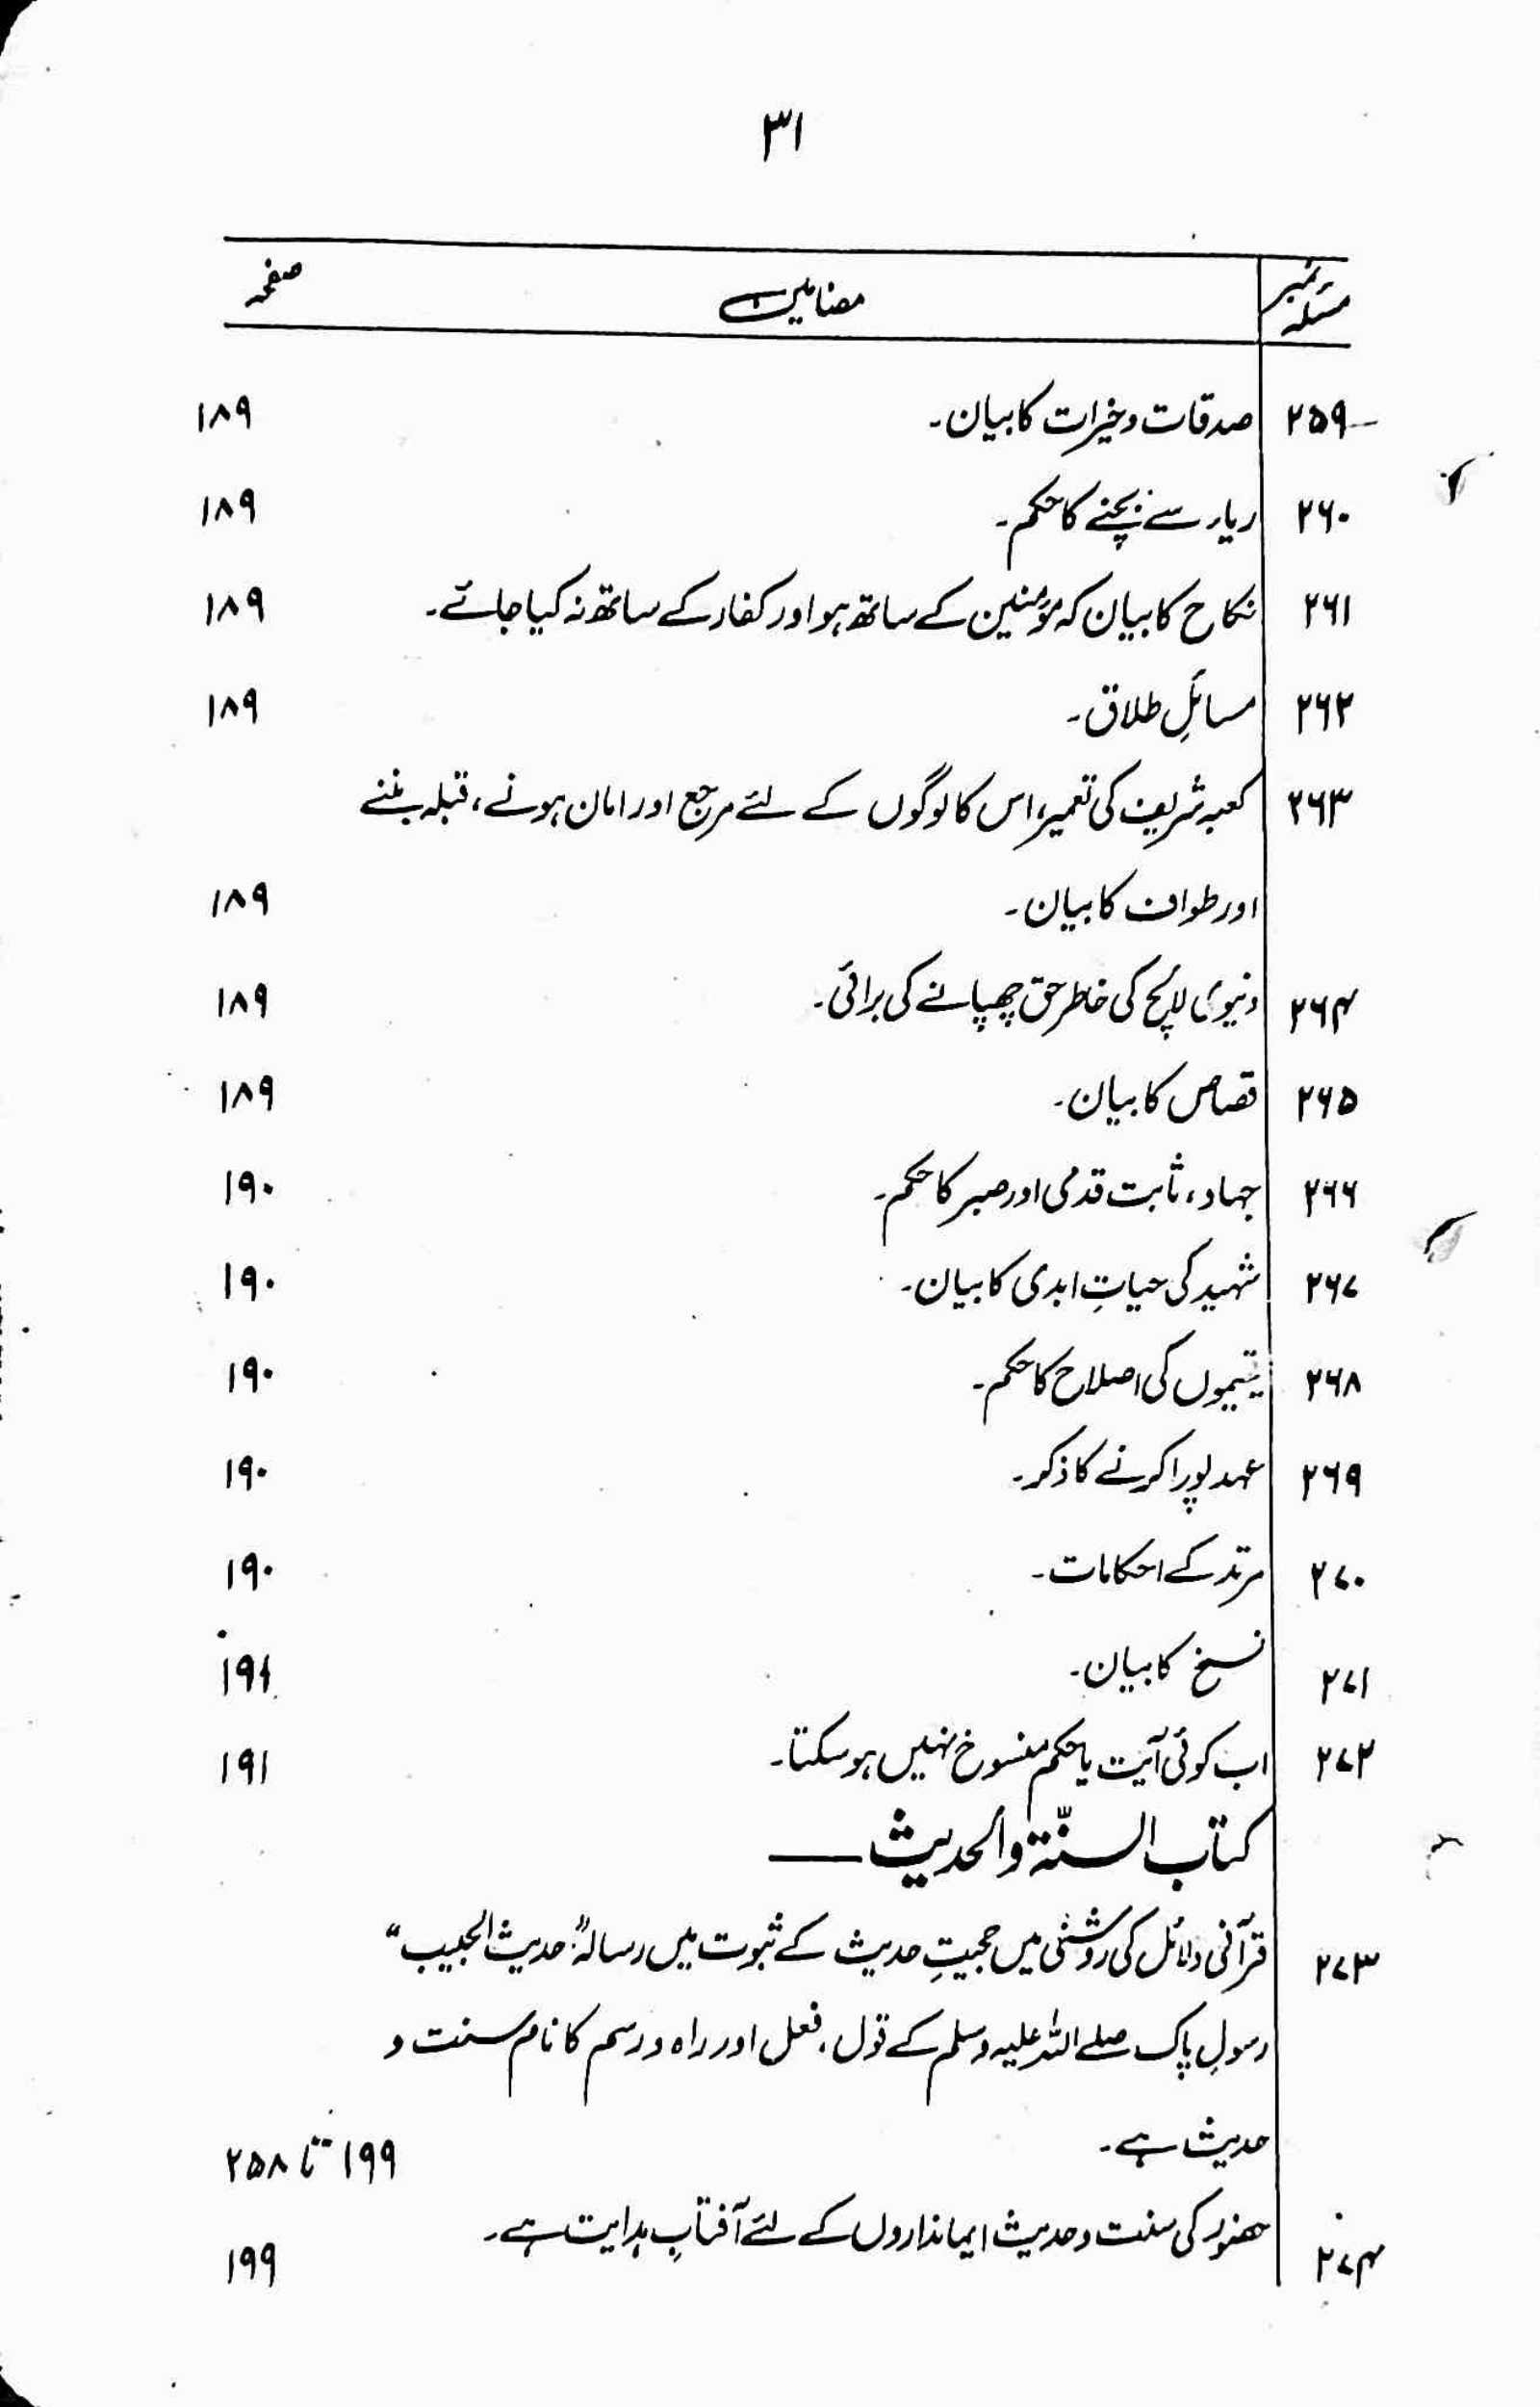 ۳۱
مسئلہ نمبر مضامین صفحہ
۲۵۹ صدقات و خیرات کا بیان۔ ۱۸۹
۲۶۰ ریاء سے بچنے کا حکم۔ ۱۸۹
۲۶۱ نکاح کا بیان کہ مؤمنین کے ساتھ ہو اور کفار کے ساتھ نہ کیا جائے۔ ۱۸۹
۲۶۲ مسائلِ طلاق۔ ۱۸۹
۲۶۳ کعبہ شریف کی تعمیر، اس کا لوگوں کے لئے مرجع اور امان ہونے، قبلہ بننے
اور طواف کا بیان۔ ۱۸۹
۲۶۴ دنیوی لالچ کی خاطر حق چھپانے کی برائی۔ ۱۸۹
۲۶۵ قصاص کا بیان۔ ۱۸۹
۲۶۶ جہاد، ثابت قدمی اور صبر کا حکم۔ ۱۹۰
۲۶۷ شہید کی حیاتِ ابدی کا بیان۔ ۱۹۰
۲۶۸ یتیموں کی اصلاح کا حکم۔ ۱۹۰
۲۶۹ عہد پورا کرنے کا ذکر۔ ۱۹۰
۲۷۰ مرتد کے احکامات۔ ۱۹۰
۲۷۱ نسخ کا بیان۔ ۱۹۱
۲۷۲ اب کوئی آیت یا حکم منسوخ نہیں ہو سکتا۔ ۱۹۱
کتاب السنّۃ والحدیث ــــــ
۲۷۳ قرآنی دلائل کی روشنی میں حجیتِ حدیث کے ثبوت میں رسالہ: "حدیث الحبیب"
رسولِ پاک صلے اللہ علیہ وسلم کے قول، فعل اور راہ و رسم کا نام سنت و
حدیث ہے۔ ۱۹۹ تا ۲۵۸
۲۷۴ حضور کی سنت و حدیث ایمانداروں کے لئے آفتابِ ہدایت ہے۔ ۱۹۹